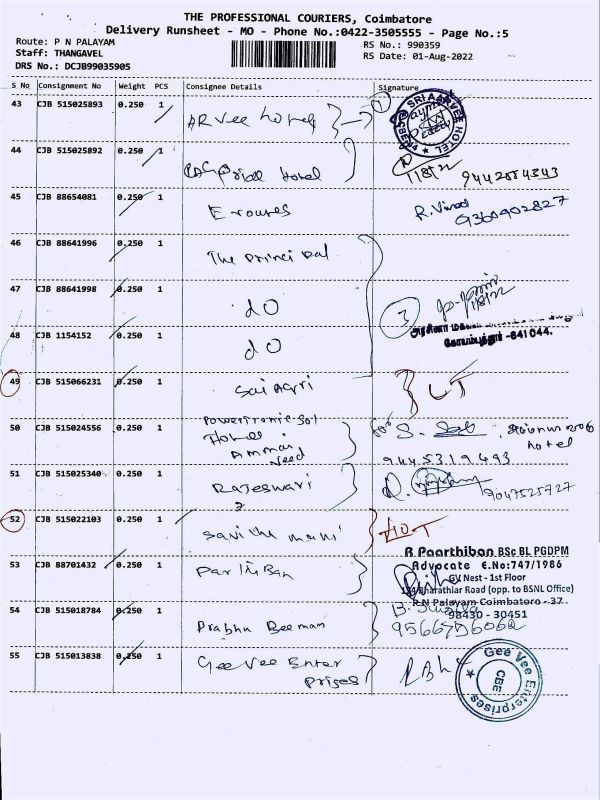 THE PROFESSIONAL COURIERS, Coimbatore
Delivery Runsheet - MO - Phone No.:0422-3505555 - Page No.:5
Route: P N PALAYAM
RS No.: 990359
Staff: THANGAVEL
RS Date: 01-Aug-2022
DRS No.: DCJB99035905
S No Consignment No Weight PCS Consignee Details Signature
43 CJB 515025893 0.250 1 AR Vee hotels 1
SRI AARVEE HOTEL
44 CJB 515025892 0.250 1 hotel
9442884343
45 CJB 88654081 0.250 1 R. Vinod
9360902827
46 CJB 88641996 0.250 1 The principal
47 CJB 88641998 0.250 1 dO
3
48 CJB 1154152 0.250 1 dO
கோயம்புத்தூர் -641044.
49 CJB 515066231 0.250 1 Sai Agri
50 CJB 515024556 0.250 1 Powertronic Sol
Hotel
hotel
9445319493
51 CJB 515025340 0.250 1 Rajeswari
9047525727
52 CJB 515022103 0.250 1 mani
R Paarthiban BSc BL PGDPM
Advocate E.No:747/1986
53 CJB 88701432 0.250 1 Parthiban
GV Nest - 1st Floor
Bharathiar Road (opp. to BSNL Office)
P.N Palayam Coimbatore - 37
98430 - 30451
54 CJB 515018784 0.250 1 Prabhu Beeman
55 CJB 515013838 0.250 1 Gee Vee Enter
prises
Gee Vee Enterprises
CBE